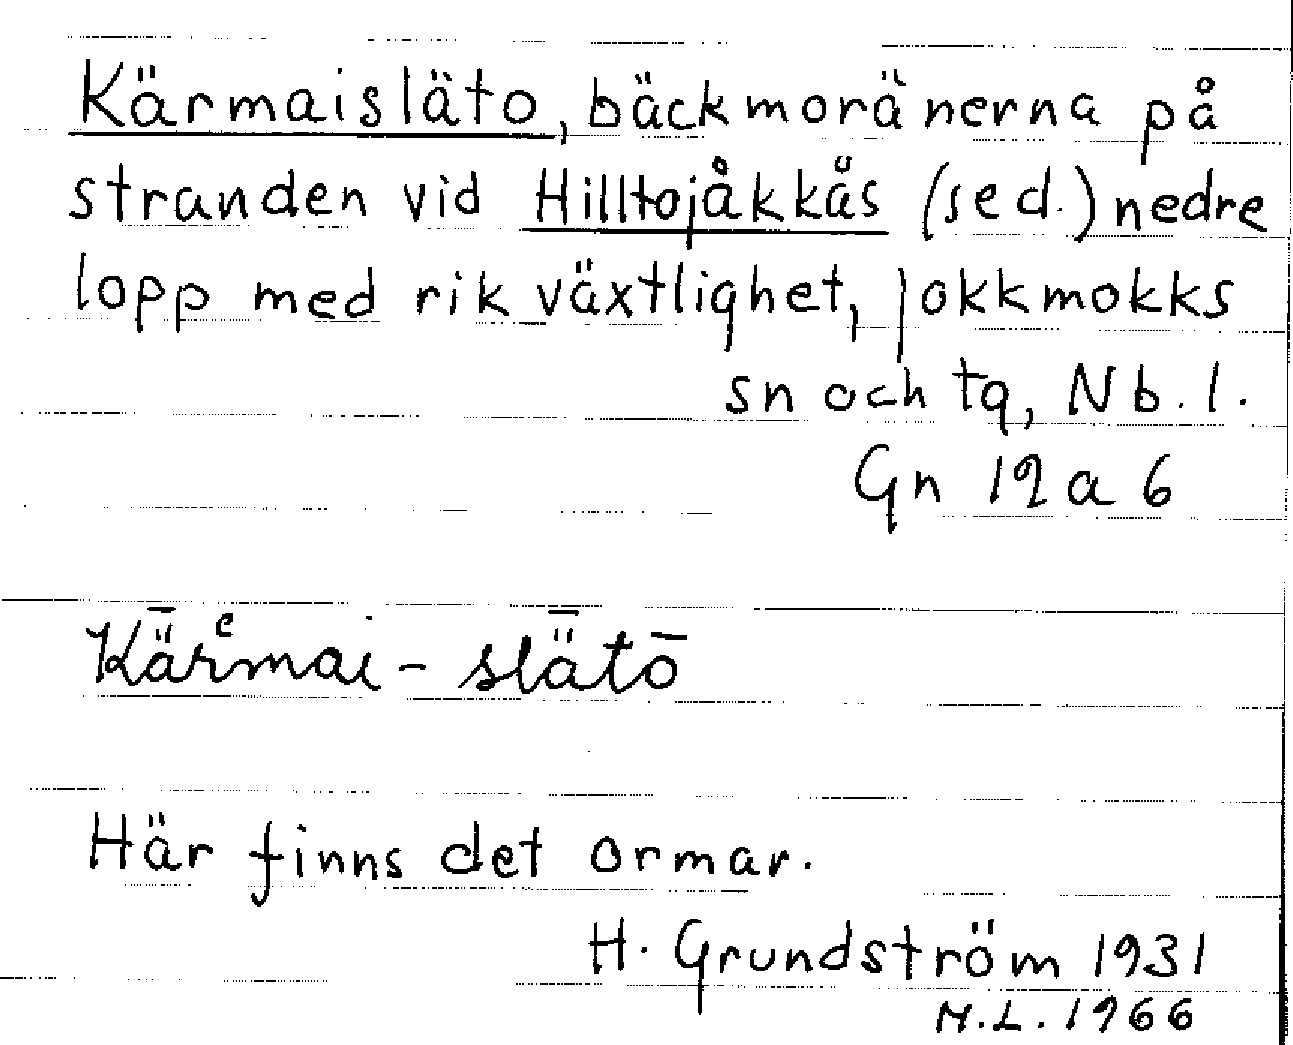 Kärmaisläto, bäckmoränerna på
stranden vid Hilltojåkkås (se d.) nedre
lopp med rik växtlighet, Jokkmokks
sn och tg, Nb. l.
Gn 19 a 6
Kǟrᵉmai - slǟtō
Här finns det ormar.
H. Grundström 1931
M.L. 1966